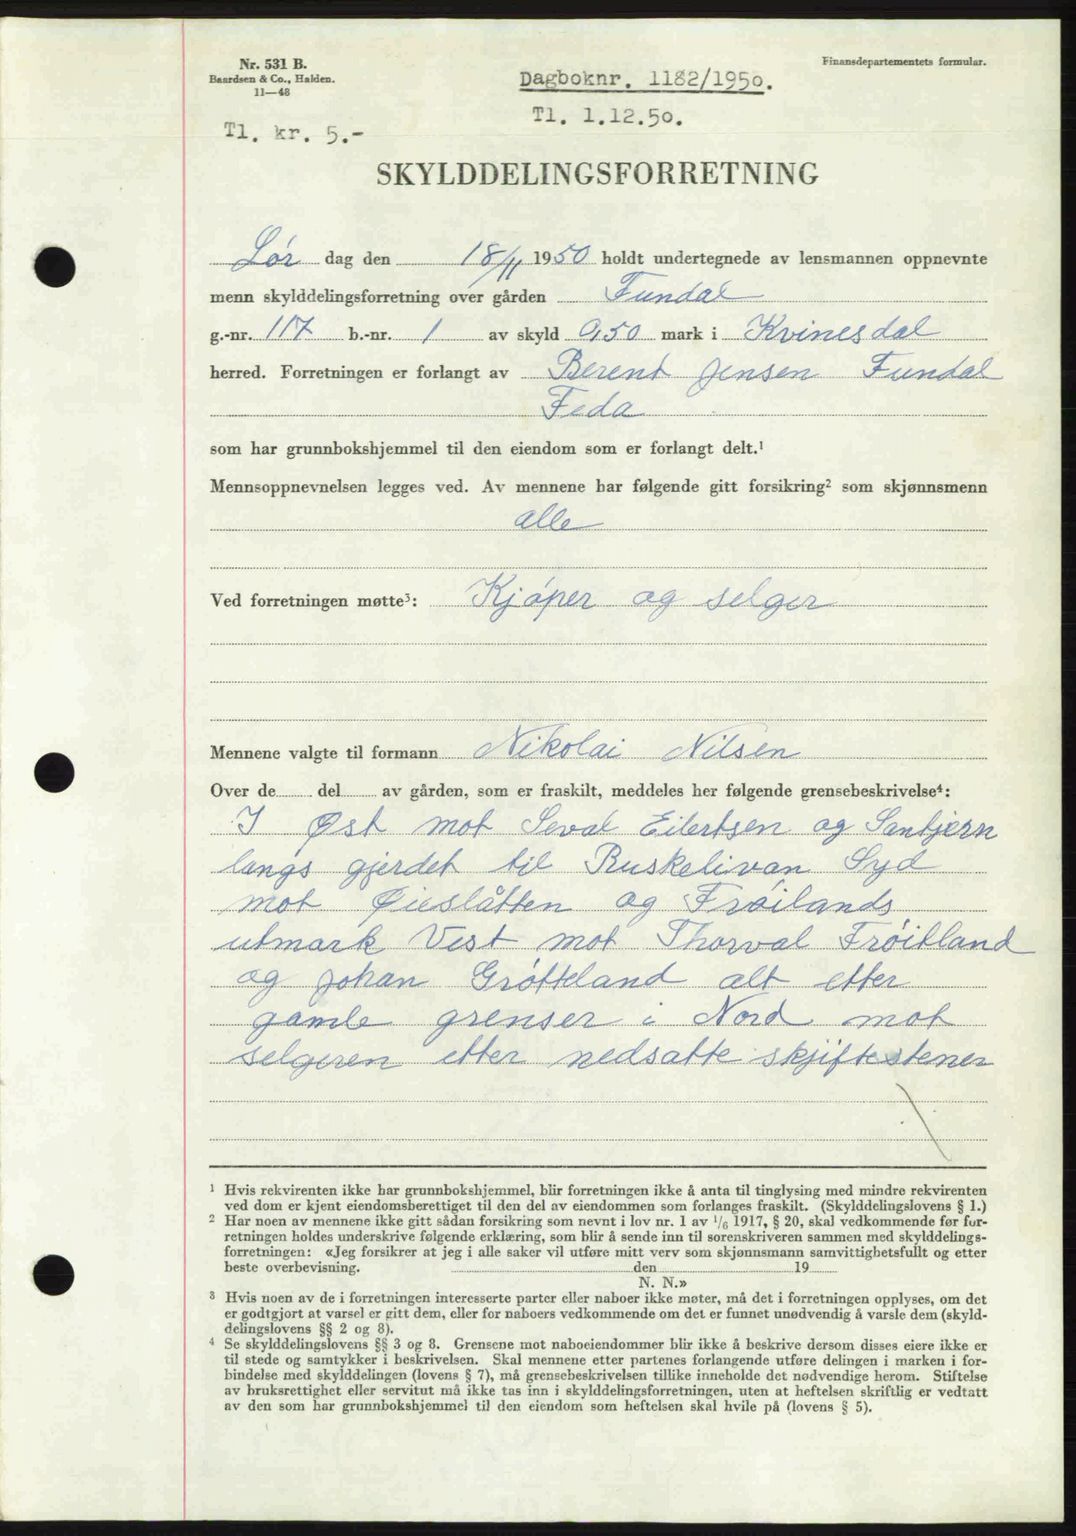 Nr. 531 B.
Baardsen & Co., Halden.
11—48
Finansdepartementets formular.
Dagboknr. 1182/1950.
Tl. 1.12.50.
Tl. kr. 5.-
SKYLDDELINGSFORRETNING
Lør dag den 18/11 1950 holdt undertegnede av lensmannen oppnevnte
menn skylddelingsforretning over gården Fundal
g.-nr. 117 b.-nr. 1 av skyld 0,50 mark i Kvinesdal
herred. Forretningen er forlangt av Berent Jensen Fundal
Feda
som har grunnbokshjemmel til den eiendom som er forlangt delt.¹
Mennsoppnevnelsen legges ved. Av mennene har følgende gitt forsikring² som skjønnsmenn
alle
Ved forretningen møtte³: Kjøper og selger
Mennene valgte til formann Nikolai Nilsen
Over de........ del........ av gården, som er fraskilt, meddeles her følgende grensebeskrivelse⁴:
I Øst mot Seval Eilertsen og Sanbjern
langs gjerdet til Ruskelivan Syd
mot Øieslåtten og Frøilands
utmark Vest mot Thorval Frøitland
og Johan Grøtteland alt etter
gamle grenser i Nord mot
selgeren etter nedsatte skjiftestener
¹ Hvis rekvirenten ikke har grunnbokshjemmel, blir forretningen ikke å anta til tinglysing med mindre rekvirenten
ved dom er kjent eiendomsberettiget til den del av eiendommen som forlanges fraskilt. (Skylddelingslovens § 1.)
² Har noen av mennene ikke gitt sådan forsikring som nevnt i lov nr. 1 av 1/6 1917, § 20, skal vedkommende før for-
retningen holdes underskrive følgende erklæring, som blir å sende inn til sorenskriveren sammen med skylddelings-
forretningen: «Jeg forsikrer at jeg i alle saker vil utføre mitt verv som skjønnsmann samvittighetsfullt og etter
beste overbevisning. den 19
N. N.»
³ Hvis noen av de i forretningen interesserte parter eller naboer ikke møter, må det i forretningen opplyses, om det
er godtgjort at varsel er gitt dem, eller for naboers vedkommende om det er funnet unødvendig å varsle dem (skyld-
delingslovens §§ 2 og 8).
⁴ Se skylddelingslovens §§ 3 og 8. Grensene mot naboeiendommer blir ikke å beskrive dersom disses eiere ikke er
til stede og samtykker i beskrivelsen. Skal mennene etter partenes forlangende utføre delingen i marken i for-
bindelse med skylddelingen (lovens § 7), må grensebeskrivelsen tillike inneholde det nødvendige herom. Stiftelse
av bruksrettighet eller servitut må ikke tas inn i skylddelingsforretningen, uten at heftelsen skriftlig er vedtatt
av den som har grunnbokshjemmel til den eiendom som heftelsen skal hvile på (lovens § 5).